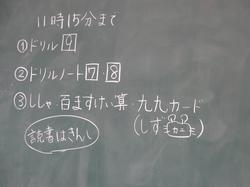 11時15分まで
①ドリル9
②ドリルノート7・8
③ししゃ・百ますけい算・九九カード
(しずカニ)
読書はきんし